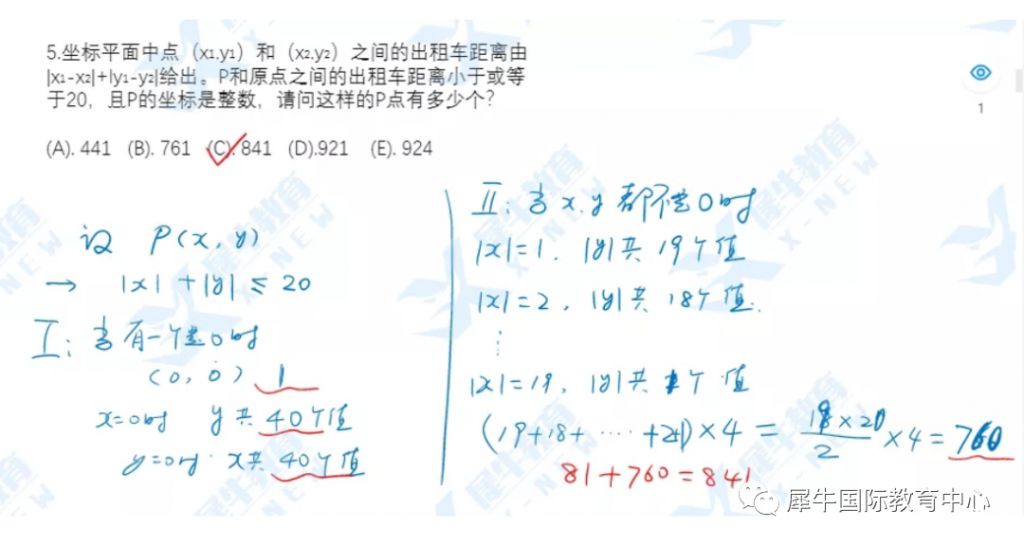 5.坐标平面中点（x₁,y₁）和（x₂,y₂）之间的出租车距离由
|x₁-x₂|+|y₁-y₂|给出。P和原点之间的出租车距离小于或等
于20，且P的坐标是整数，请问这样的P点有多少个？
(A). 441 (B). 761 (C). 841 (D).921 (E). 924
1
设 P(x, y)
→ |x| + |y| ≤ 20
I: 当有一个是0时
(0, 0) 1
x=0时 y共 40个值
y=0时 x共 40个值
II: 当 x, y 都不是0时
|x|=1, |y|共 19个值
|x|=2, |y|共 18个值.
⋮
|x|=19, |y|共 1个值
(19+18+ ⋯ +2+1)×4 = 19×20/2 ×4 = 760
81+760=841
犀牛国际教育中心
犀牛教育
X-NEW